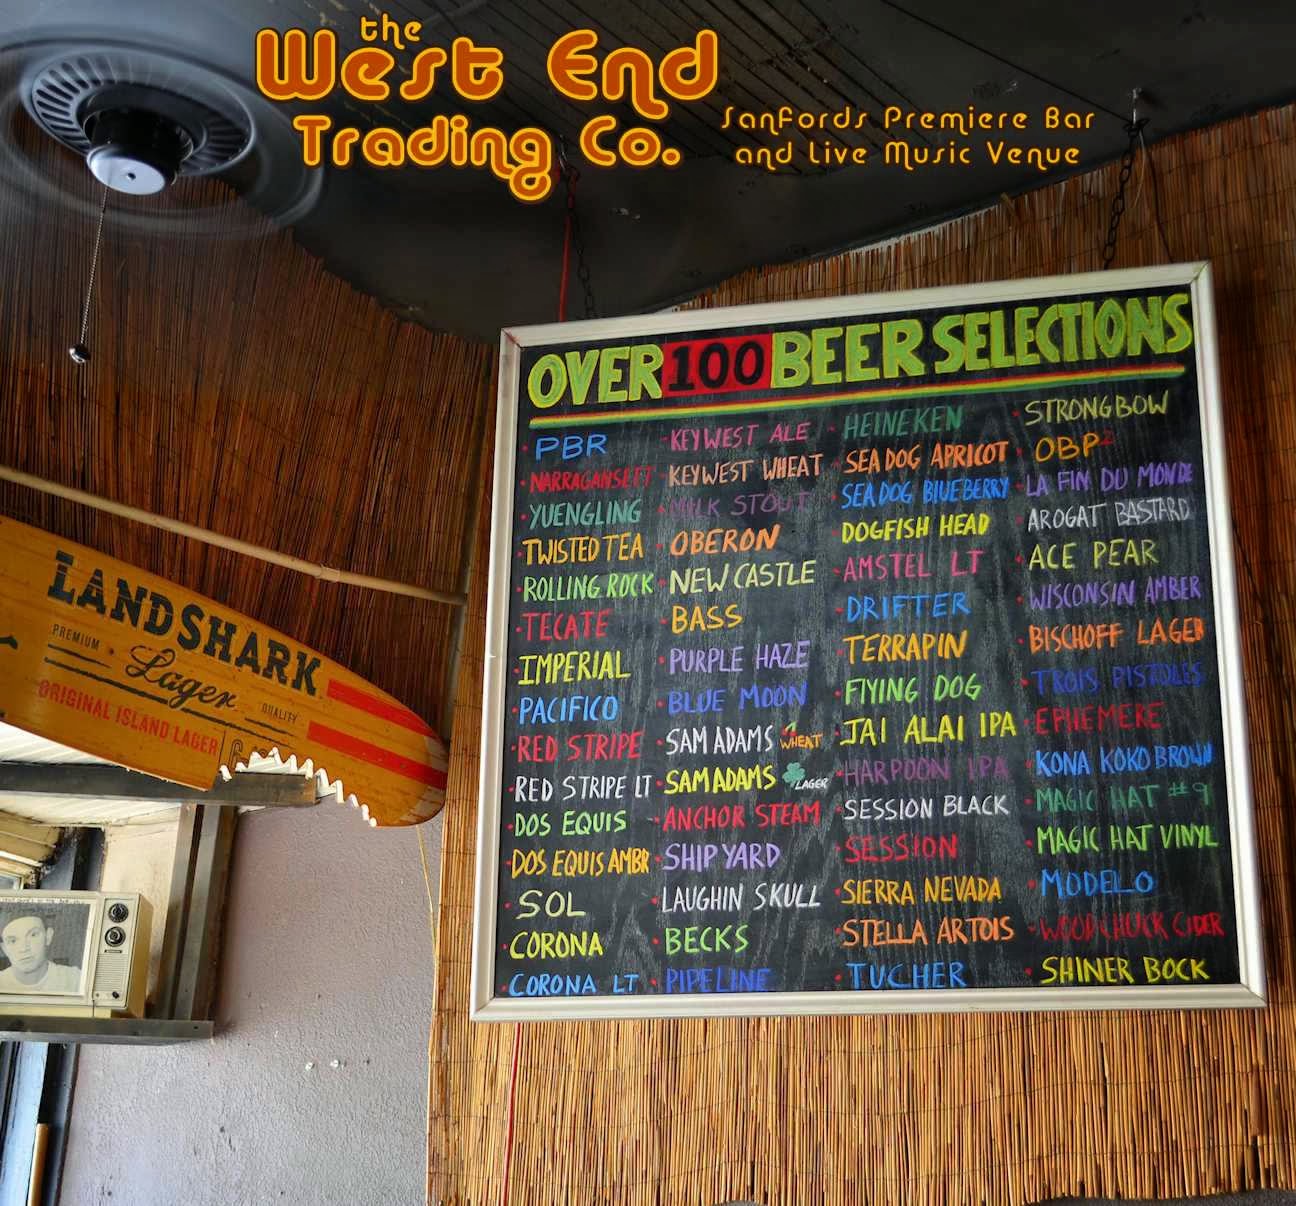 the
West End
Trading Co.
Sanfords Premiere Bar
and Live Music Venue
OVER 100 BEER SELECTIONS
PBR
NARRAGANSETT
YUENGLING
TWISTED TEA
ROLLING ROCK
TECATE
IMPERIAL
PACIFICO
RED STRIPE
RED STRIPE LT
DOS EQUIS
DOS EQUIS AMBR
SOL
CORONA
CORONA LT
KEY WEST ALE
KEY WEST WHEAT
MILK STOUT
OBERON
NEW CASTLE
BASS
PURPLE HAZE
BLUE MOON
SAM ADAMS WHEAT
SAM ADAMS LAGER
ANCHOR STEAM
SHIP YARD
LAUGHIN SKULL
BECKS
PIPELINE
HEINEKEN
SEA DOG APRICOT
SEA DOG BLUEBERRY
DOGFISH HEAD
AMSTEL LT
DRIFTER
TERRAPIN
FlYING DOG
JAI ALAI IPA
HARPOON IPA
SESSION BLACK
SESSION
SIERRA NEVADA
STELLA ARTOIS
TUCHER
STRONGBOW
OBP²
LA FIN DU MONDE
AROGAT BASTARD
ACE PEAR
WISCONSIN AMBER
BISCHOFF LAGER
TROIS PISTOLES
EPHEMERE
KONA KOKO BROWN
MAGIC HAT #9
MAGIC HAT VINYL
MODELO
WOODCHUCK CIDER
SHINER BOCK
LANDSHARK
PREMIUM Lager QUALITY
ORIGINAL ISLAND LAGER